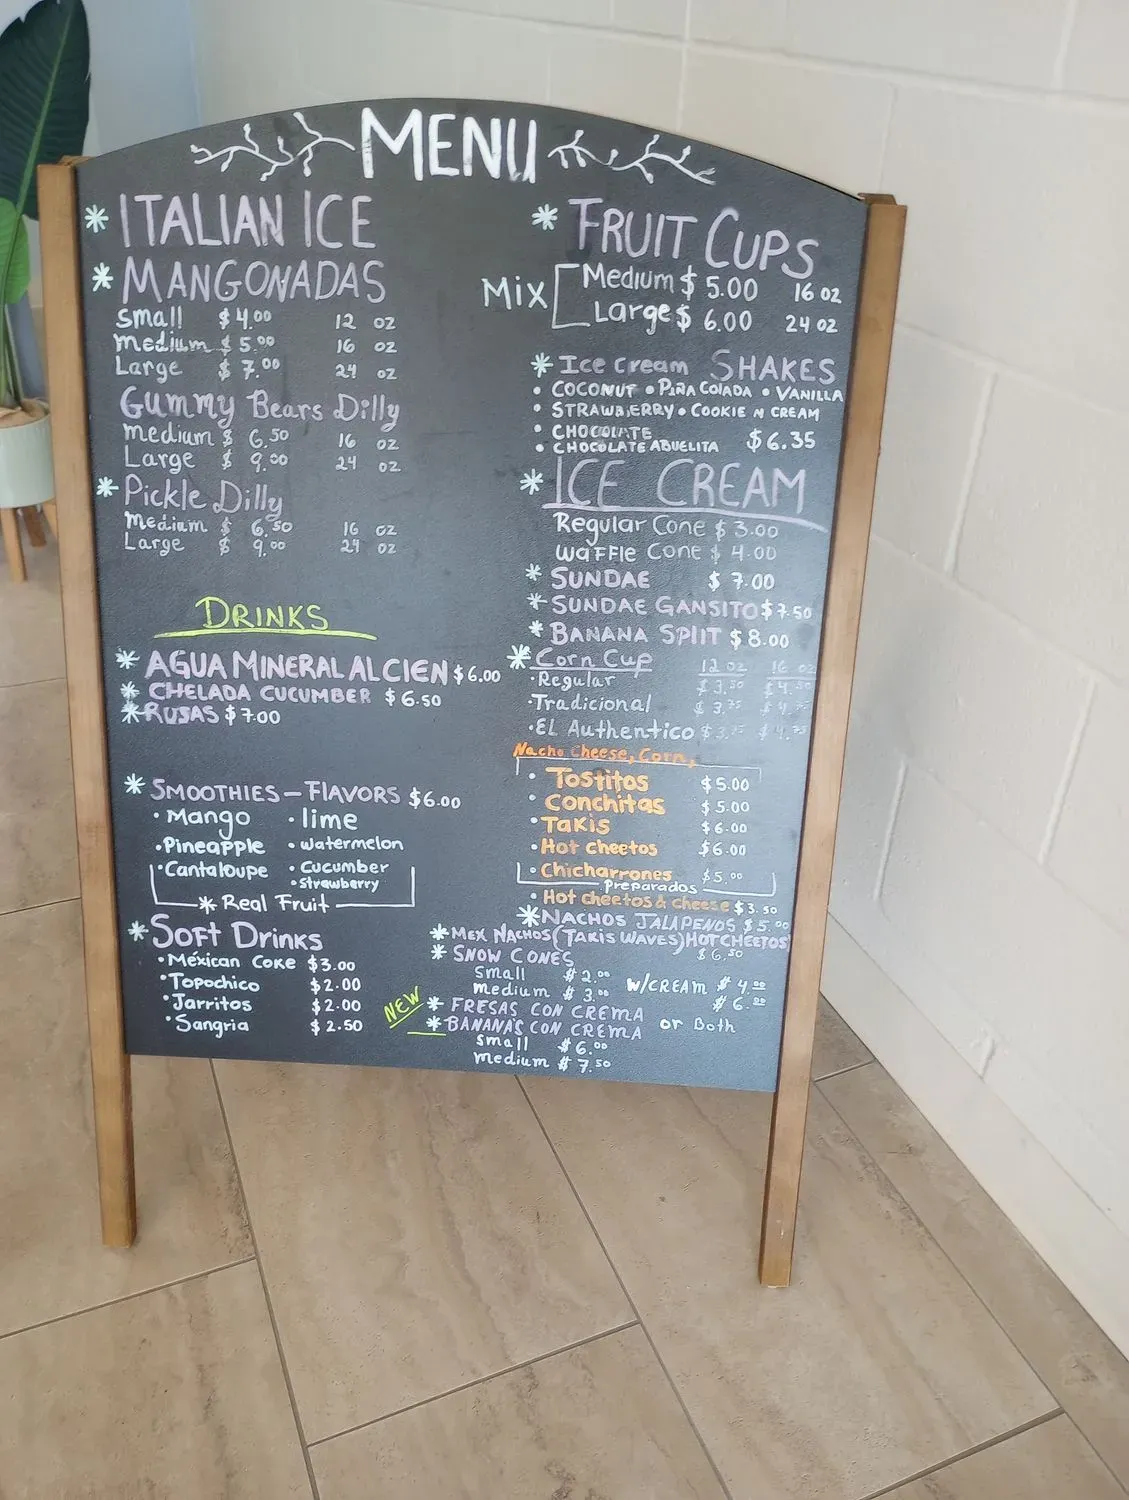 MENU
* ITALIAN ICE
* MANGONADAS
Small $4.00 12 oz
medium $5.00 16 oz
Large $7.00 24 oz
Gummy Bears Dilly
medium $6.50 16 oz
Large $9.00 24 oz
* Pickle Dilly
Medium $6.50 16 oz
Large $9.00 24 oz
DRINKS
* AGUA MINERAL ALCIEN $6.00
* CHELADA CUCUMBER $6.50
* RUSAS $7.00
* SMOOTHIES – FLAVORS $6.00
• Mango • lime
• Pineapple • watermelon
• Cantaloupe • Cucumber
• Strawberry
* Real Fruit
* SOFT DRINKS
• Mexican Coke $3.00
• Topochico $2.00
• Jarritos $2.00
• Sangria $2.50
* FRUIT CUPS
Mix
Medium $5.00 16 oz
Large $6.00 24 oz
* Ice Cream SHAKES
• COCONUT • PIÑA COLADA • VANILLA
• STRAWBERRY • COOKIE N CREAM
• CHOCOLATE
• CHOCOLATE ABUELITA $6.35
* ICE CREAM
Regular Cone $3.00
WAFFLE Cone $4.00
* SUNDAE $7.00
* SUNDAE GANSITO $7.50
* BANANA SPIIT $8.00
* Corn Cup 12 oz 16 oz
• Regular $3.50 $4.50
• Tradicional $3.75
• EL Authentico $3.75 $4.75
Nacho Cheese, Corn,
• Tostitos $5.00
• Conchitas $5.00
• TAKIS $6.00
• Hot Cheetos $6.00
• Chicharrones $5.00
Preparados
• Hot cheetos & cheese $3.50
* NACHOS JALAPEÑOS $5.00
* MEX NACHOS (TAKIS WAVES) HOT CHEETOS
$6.50
* SNOW CONES
Small $2.00 W/CREAM $4.00
medium $3.00 $6.00
NEW
* FRESAS CON CREMA
* BANANAS CON CREMA or Both
Small $6.00
medium $7.50